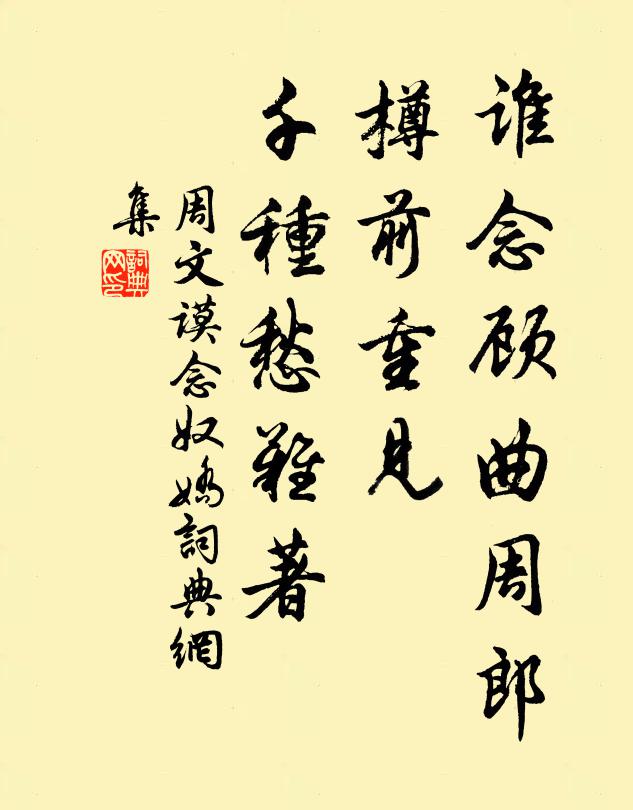 谁念顾曲周郎
樽前重见
千種愁難著
周文谟念奴嬌詞典網
集
詞典
网印